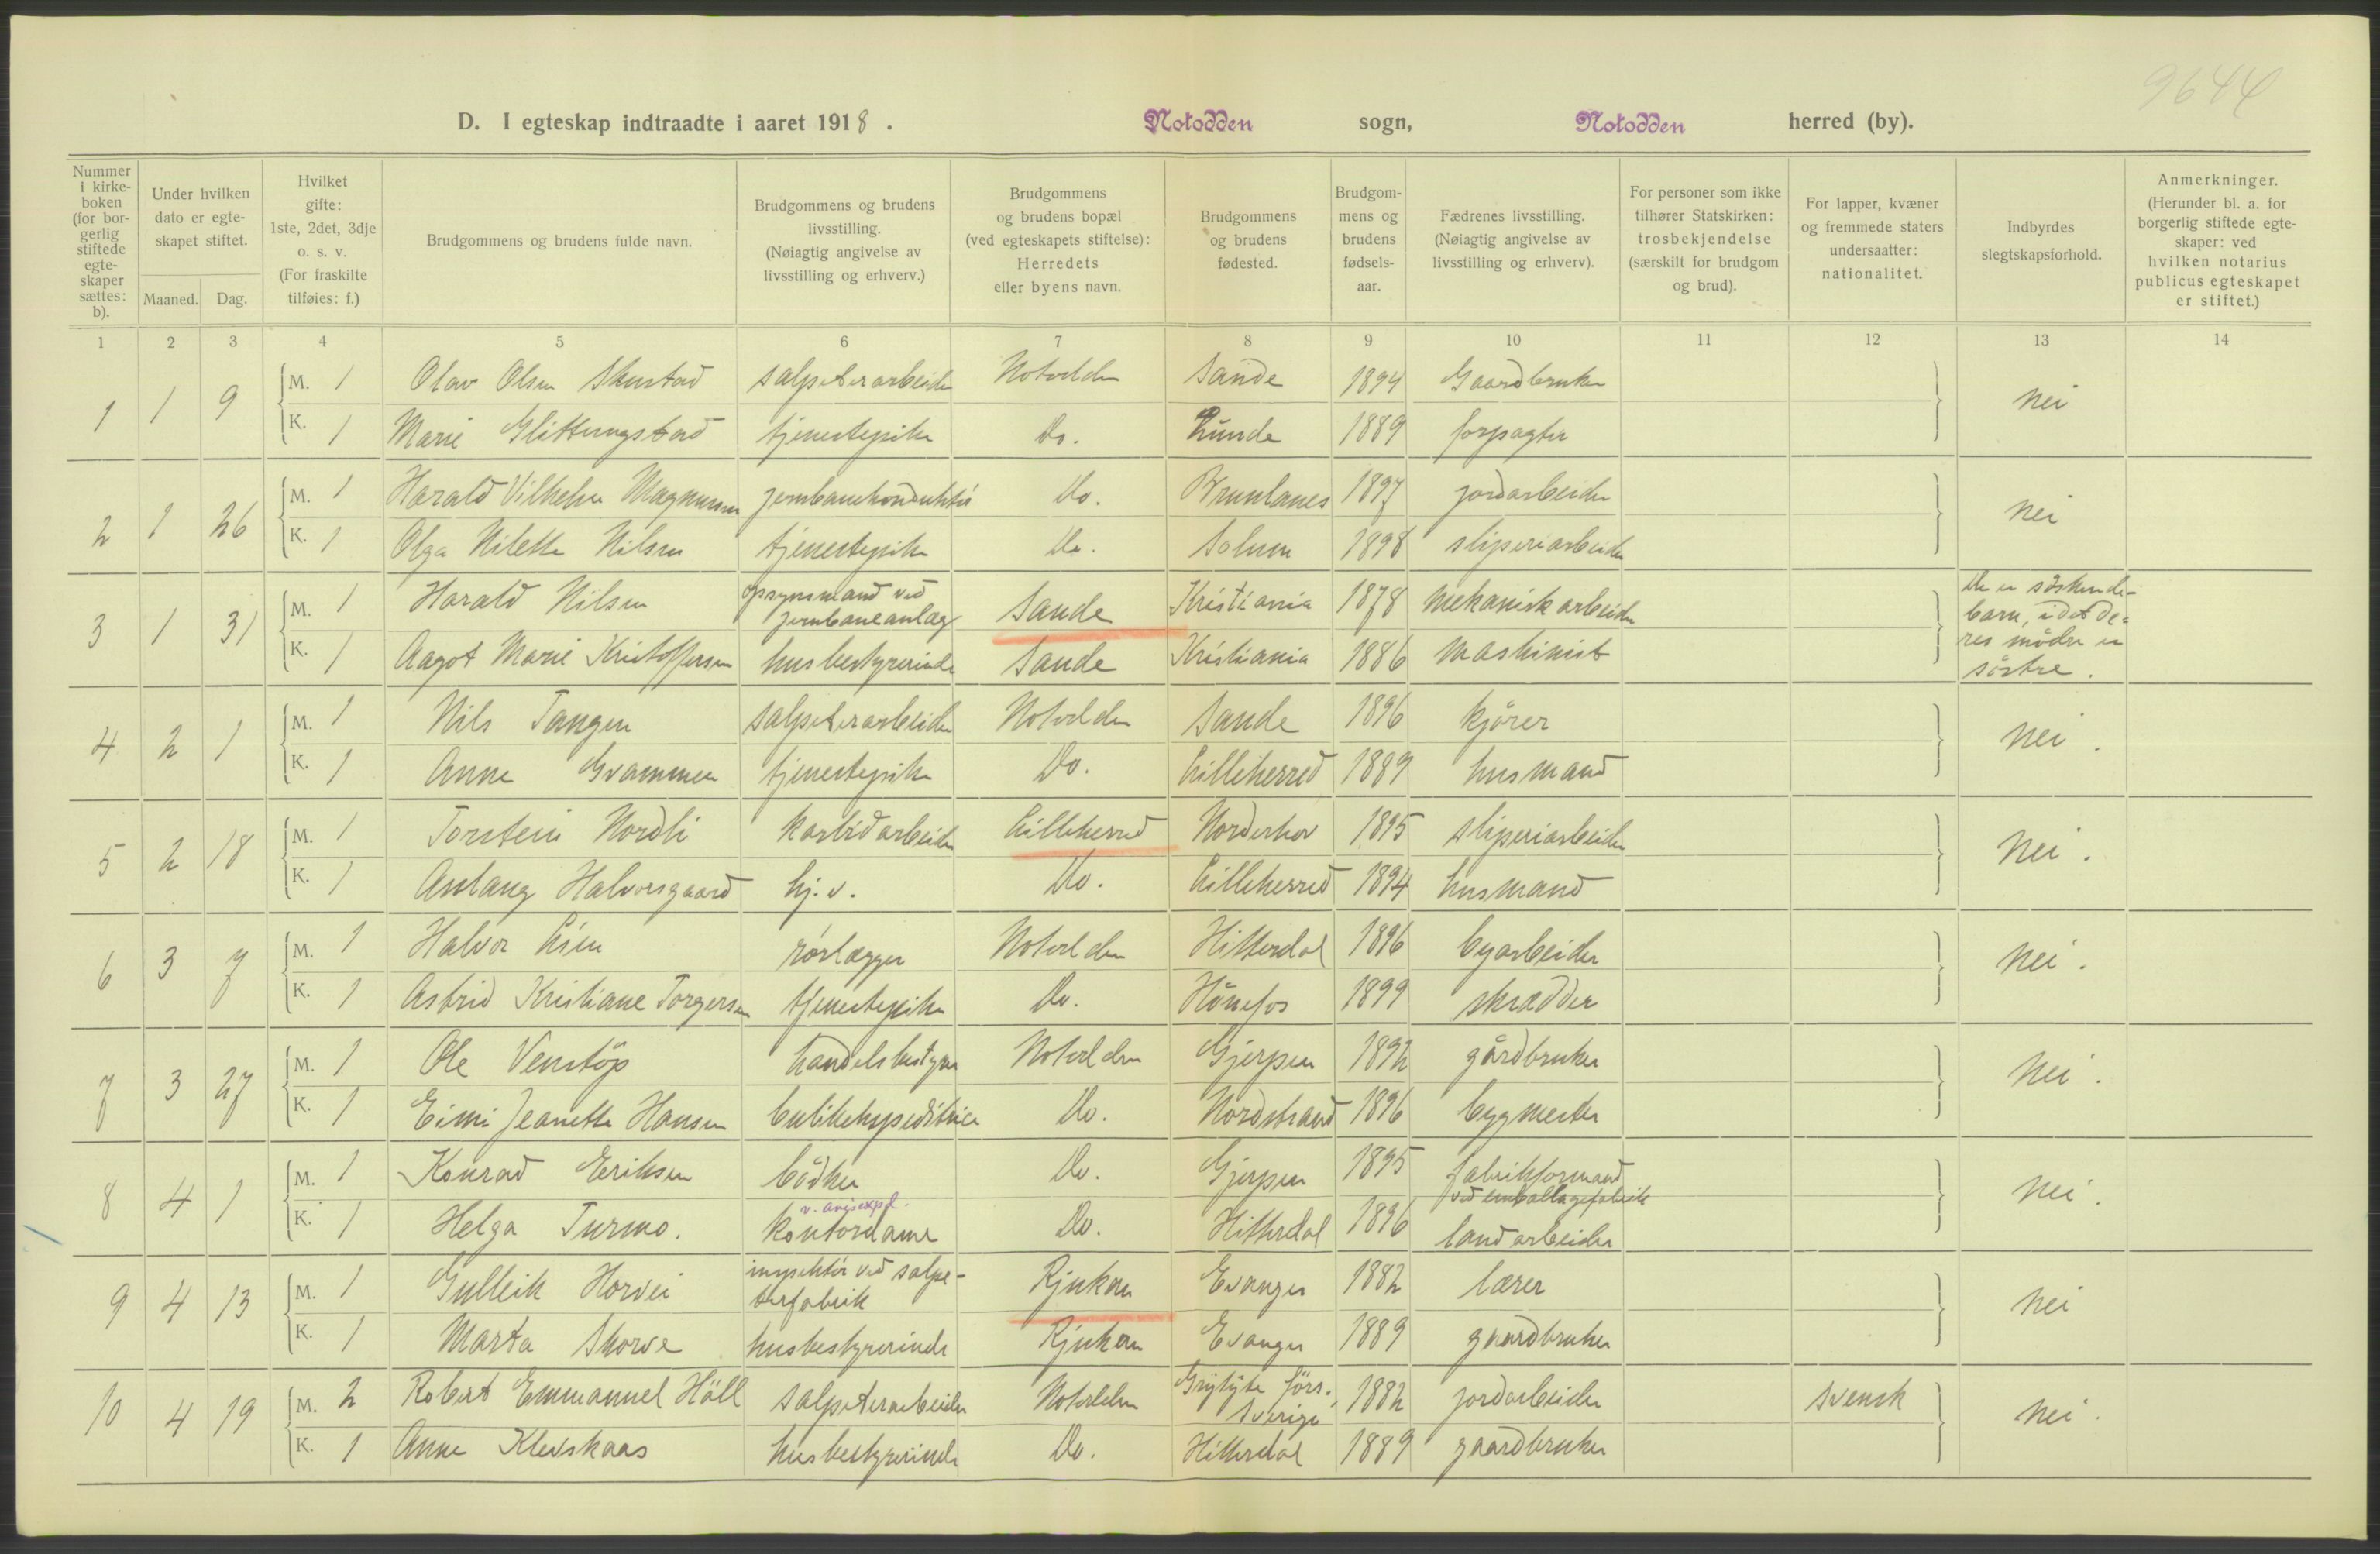 9644
D. I egteskap indtraadte i aaret 1918. Notodden sogn, Notodden herred (by).
Nummer i kirkeboken (for borgerlig stiftede egteskaper sættes: b).
Under hvilken dato er egteskapet stiftet.
Maaned. Dag.
Hvilket gifte: 1ste, 2det, 3dje o. s. v. (For fraskilte tilføies: f.)
Brudgommens og brudens fulde navn.
Brudgommens og brudens livsstilling. (Nøiagtig angivelse av livsstilling og erhverv.)
Brudgommens og brudens bopæl (ved egteskapets stiftelse): Herredets eller byens navn.
Brudgommens og brudens fødested.
Brudgommens og brudens fødselsaar.
Fædrenes livsstilling. (Nøiagtig angivelse av livsstilling og erhverv).
For personer som ikke tilhører Statskirken: trosbekjendelse (særskilt for brudgom og brud).
For lapper, kvæner og fremmede staters undersaatter: nationalitet.
Indbyrdes slegtskapsforhold.
Anmerkninger. (Herunder bl. a. for borgerlig stiftede egteskaper: ved hvilken notarius publicus egteskapet er stiftet.)
1 2 3 4 5 6 7 8 9 10 11 12 13 14
1 1 9 M. 1 Olav Olsen Skustad salpeterarbeider Notodden Sande 1894 Gaardbruker nei
K. 1 Marie Glitterngstad tjenestepike Do. Lunde 1889 forpagter
2 1 26 M. 1 Harald Vilhelm Magnussen jernbanekonduktør Do. Brunlanes 1897 jordarbeider nei
K. 1 Olga Nilette Nilsen tjenestepike Do. Solum 1898 sliperiarbeider
3 1 31 M. 1 Harald Nilsen opsynsmand ved jernbaneanlæg Sande Kristiania 1878 mekanisk arbeider De er søskendebarn, idet deres mødre er søstre.
K. 1 Aagot Marie Kristoffersen husbestyrerinde Sande Kristiania 1886 maskinist
4 2 1 M. 1 Nils Tangen salpeterarbeider Notodden Sande 1896 kjører nei.
K. 1 Anne Gvammen tjenestepike Do. Lilleherred 1889 husmand
5 2 18 M. 1 Torstein Nordli karbidarbeider Lilleherred Norderhov 1895 sliperiarbeider nei.
K. 1 Anlaug Halvorsgaard hj. v. Do. Lilleherred 1894 husmand
6 3 7 M. 1 Halvor Lien rørlægger Notodden Hitterdal 1896 byarbeider nei.
K. 1 Astrid Kristiane Torgersen tjenestepike Do. Hønefos 1899 skrædder
7 3 27 M. 1 Ole Venstøp handelsbestyrer Notodden Gjerpen 1892 gårdbruker nei.
K. 1 Eimi Jeanette Hansen butikekspeditrice Do. Nordstrand 1896 bygmester
8 4 1 M. 1 Konrad Eriksen bødker Do. Gjerpen 1895 fabrikformand ved emballagefabrik nei.
K. 1 Helga Turmo. kontordame v. avisexped. Do. Hitterdal 1896 landarbeider
9 4 13 M. 1 Gulleik Horvei inspektør ved salpeterfabrik Rjukan Evanger 1882 lærer nei
K. 1 Marta Skorve husbestyrerinde Rjukan Evanger 1889 gaardbruker
10 4 19 M. 2 Robert Emmanuel Häll salpeterarbeider Notodden Grytyte förs. Sverige 1882 jordarbeider svensk nei.
K. 1 Anne Klevskaas husbestyrerinde Do. Hitterdal 1889 gaardbruker